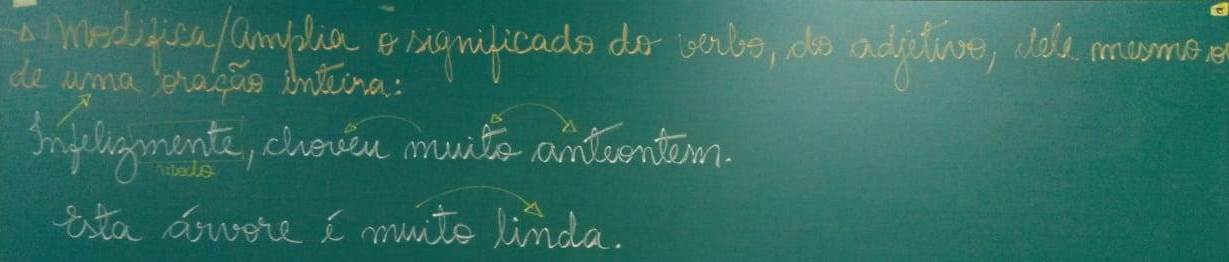 Modifica/Amplia o significado do verbo, do adjetivo, dele mesmo o
de uma oração inteira:
Infelizmente, choveu muito anteontem.
modo
Esta árvore é muito linda.